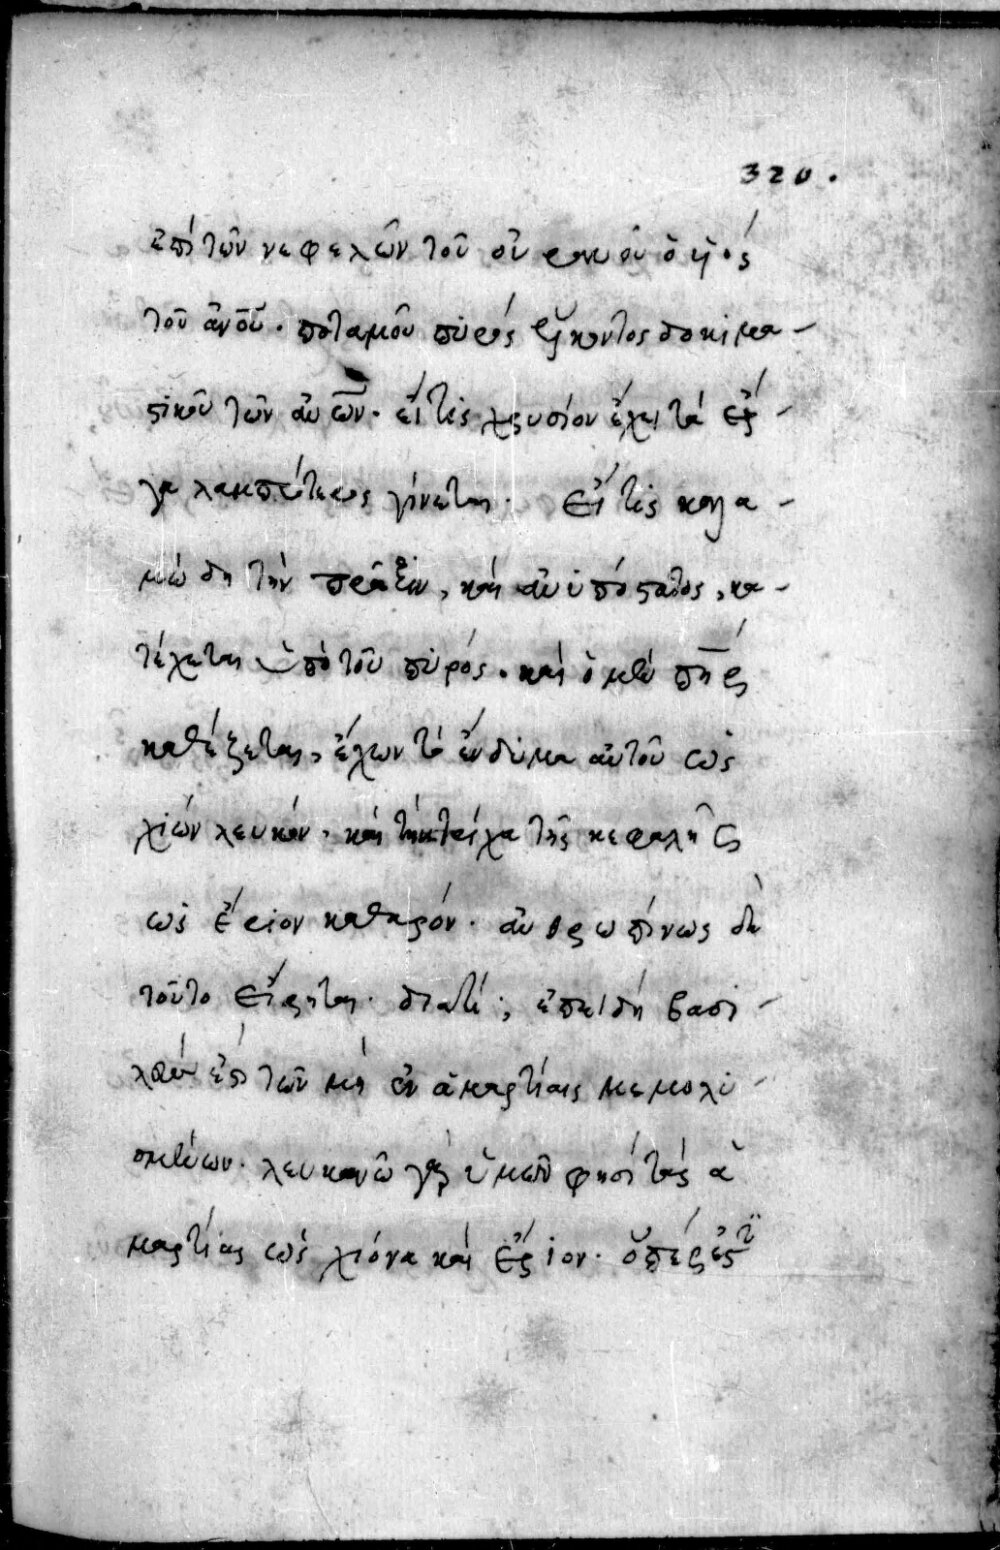 320.
ἐπὶ τῶν νεφελῶν τοῦ οὐρανοῦ ὁ ὑιὸς
τοῦ ἀνου. ποταμοῦ πυρὸς ἕλκοντος δοκιμα-
στικοῦ τῶν ανων. εἴ τις χρυσίον ἔχει τὰ ἔρ-
γα λαμπρότερος γίνεται. εἴ τις καλα-
μώδη τὴν πρᾶξιν, καὶ ἀνυπόστατος, κα-
τέχεται ὑπὸ τοῦ πυρός. καὶ ὁ μὲν πηρ
καθέζεται, ἔχων τὸ ἔνδυμα αὐτοῦ ὡς
χιών λευκόν. καὶ τὴν τρίχα τῆς κεφαλῆς
ὡς ἔριον καθαρόν. ἀνθρωπίνως δὲ
τοῦτο εἴρηται. διατί; ἐπειδὴ βασι-
λεύει τῶν μὴ ἐν ἁμαρτίαις μεμολυ
σμένων. λευκανῶ γὰρ ὑμῶν φησὶ τὰς ἁ
μαρτίας ὡς χιόνα καὶ ἔριον. ὅπερ ἐστὶ